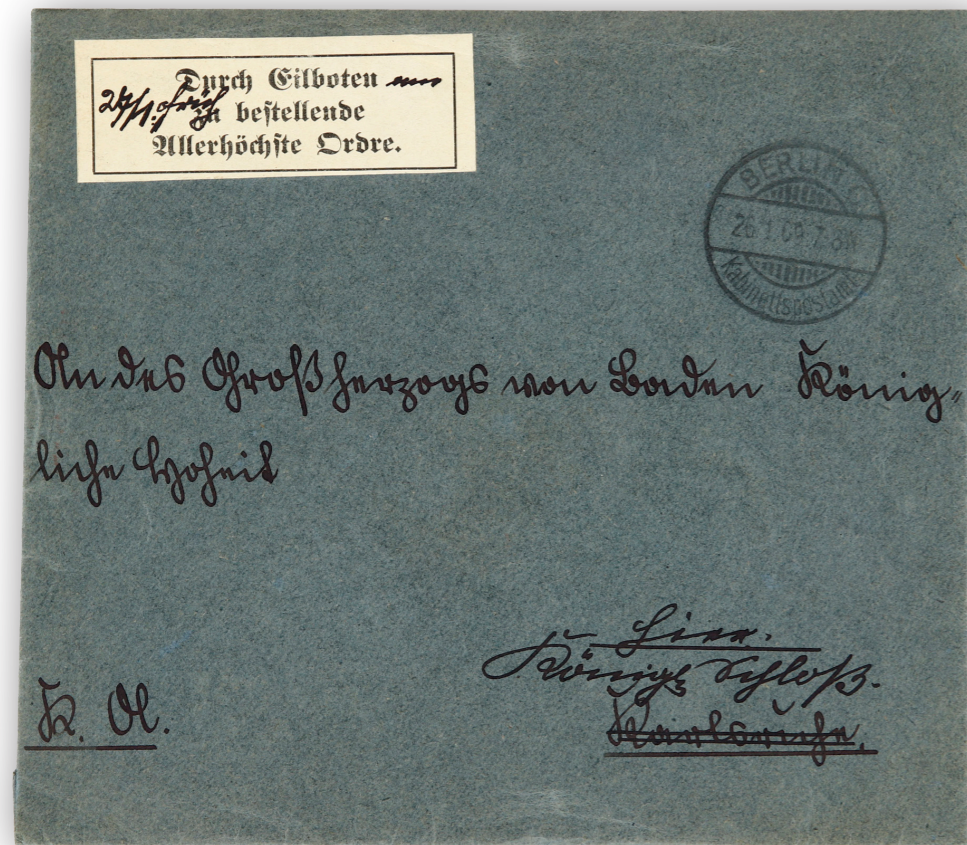 Durch Eilboten am
27/1. früh zu bestellende
Allerhöchste Ordre.
BERLIN C.
26.1.09.7-8N
Kabinettspostamt
An des Großherzogs von Baden König-
liche Hoheit
Hier.
Königl. Schloß.
K. A.
Karlsruhe.